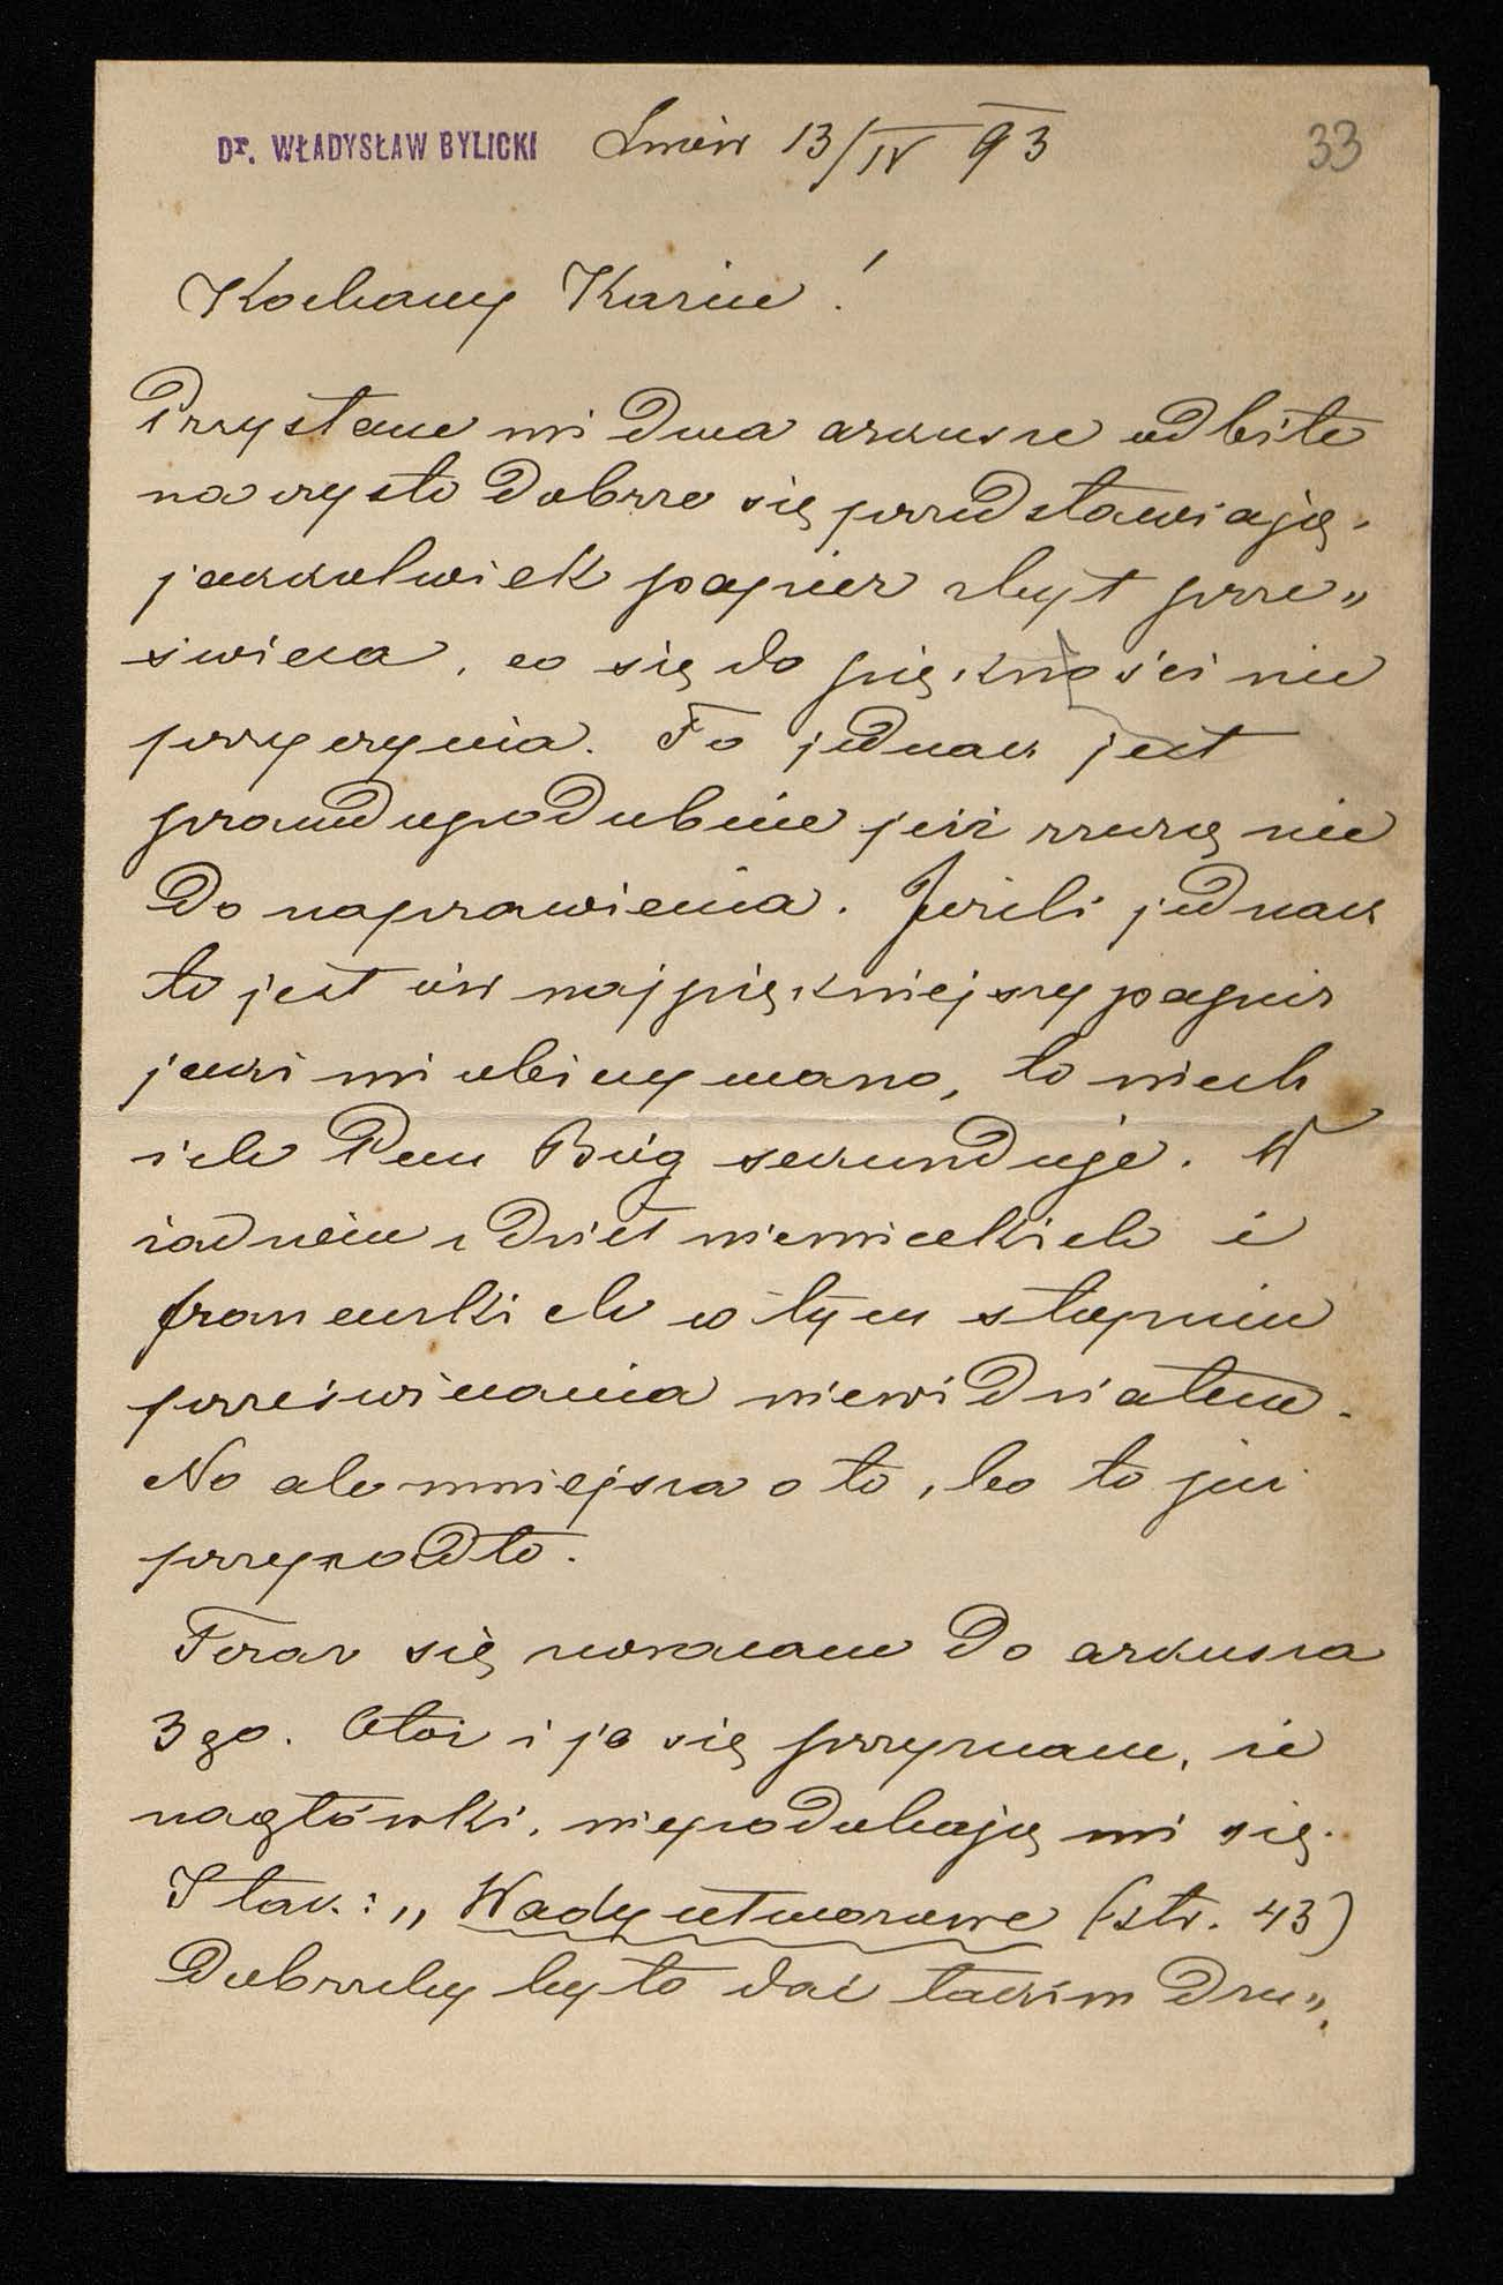 Dr. WŁADYSŁAW BYLICKI Lwów 13/IV 93
33
Kochany Kaziu!
Przysłane mi dwa arkusze odbite
na czysto dobrze się przedstawiają,
jakkolwiek papier zbyt prze„
świeca, co się do piękności nie
przyczynia. To jednak jest
prawdopodobnie już rzeczą nie
do naprawienia. Jeżeli jednak
to jest ów najpiękniejszy papier
jaki mi obiecywano, to niech
ich Pan Bóg sekunduje. W
żadnem z dzieł niemieckich i
francuzkich w tym stopniu
przeświecania niewidziałem.
No ale mniejsza o to, bo to już
przepadło.
Teraz się zwracam do arkusza
3go. Otóż i ja się przyznam, że
nagłówki, niepodobają mi się.
I tak: „Wady utworowe (str. 43)
Dobrzeby było dać takim dru„